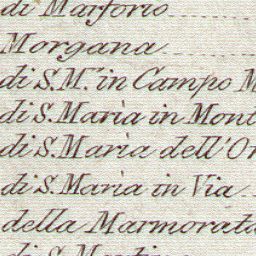 di Marforio
Morgana
di S. M.ª in Campo M
di S. Maria in Mont
di S. Maria dell'Or
di S. Maria in Via
della Marmorata
di S. Martino